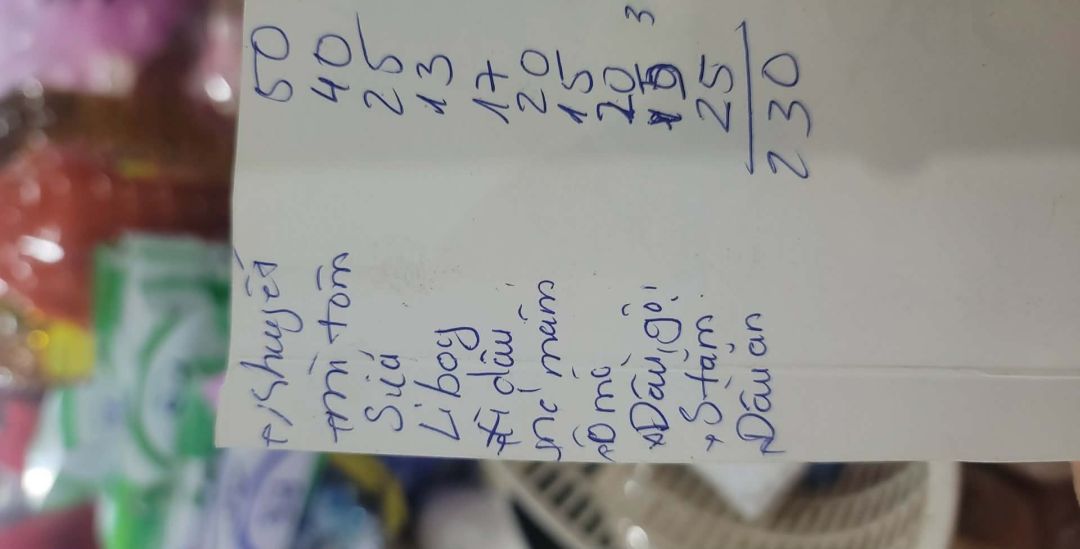 + /shuyết 50
+ mì tôm 40
Sữa 25
Liboy 13
+ Xì dầu 17
nc mắm 20
Ô mô 15
+ Dầu gội 20
+ Stắm 3
Dầu ăn 25
230